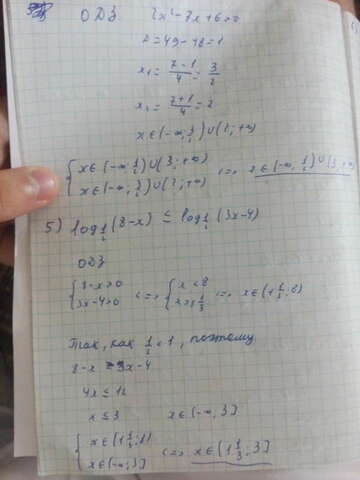 ОДЗ 2x²-7x+6>0
D=49-48=1
x₁=(7-1)/4=3/2
x₂=(7+1)/4=2
x∈(-∞; 3/2)∪(2; +∞)
{x∈(-∞; 1/2)∪(3; +∞)
{x∈(-∞; 3/2)∪(2; +∞) <=> x∈(-∞; 1/2)∪(3; +∞)
5) log½(8-x) ≤ log½(3x-4)
ОДЗ
{8-x>0
{3x-4>0 <=> {x<8
{x>1⅓ <=> x∈(1⅓; 8)
Так, как ½<1, поэтому
8-x ≥ 3x-4
4x≤12
x≤3 x∈(-∞; 3]
{x∈(1⅓; 8)
{x∈(-∞; 3] <=> x∈(1⅓; 3]